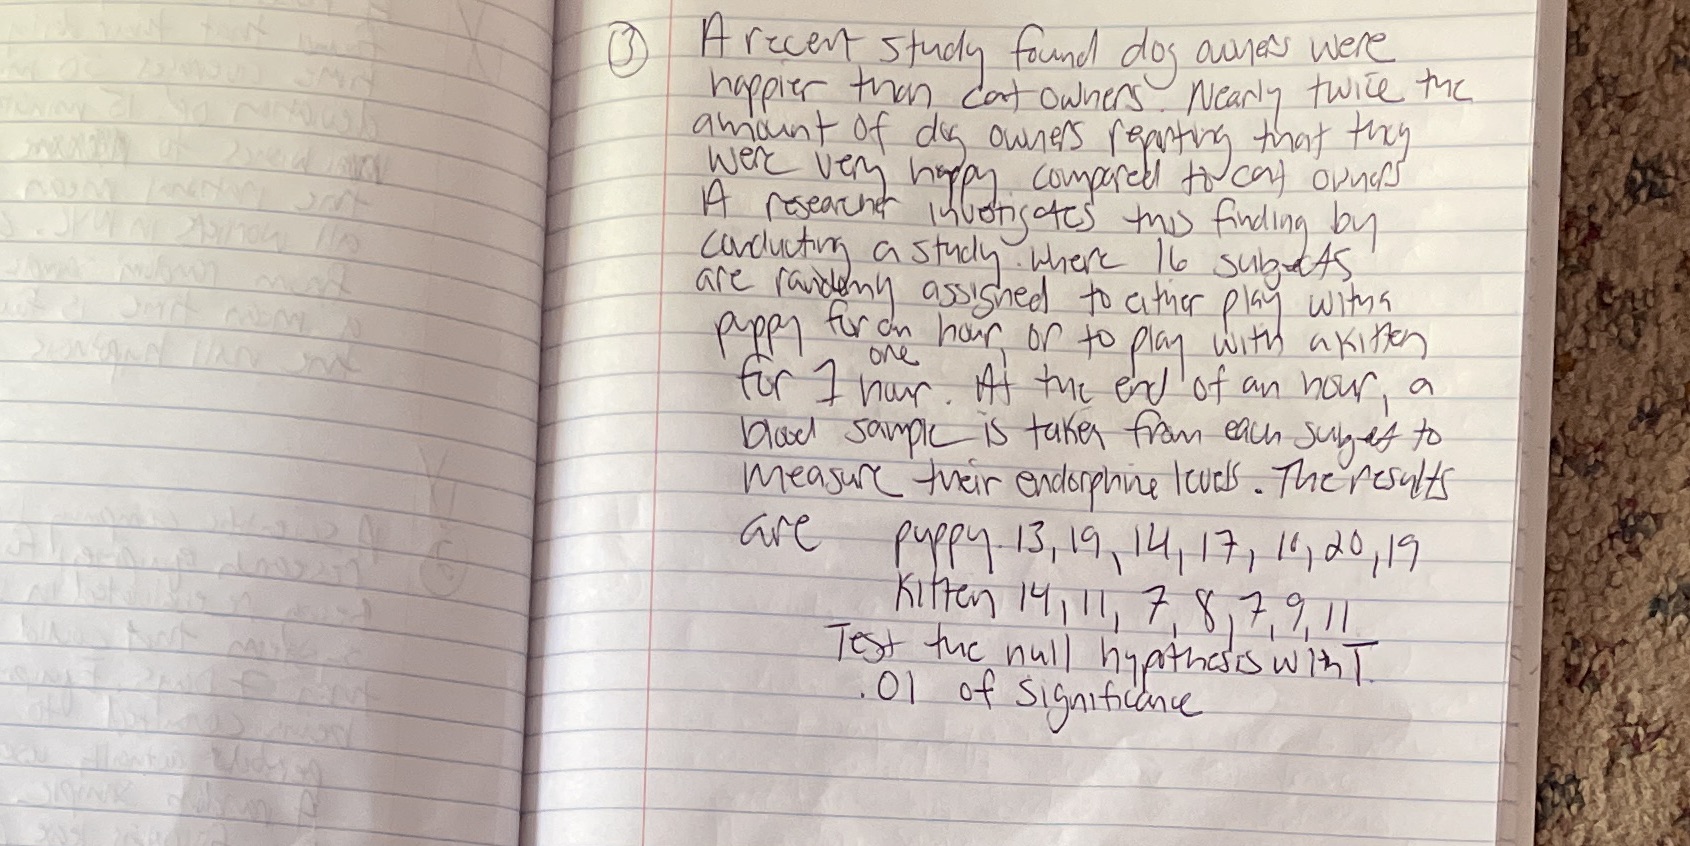 ③ A recent study found dog owners were
happier than cat owners. Nearly twice the
amount of dog owners reporting that they
were very happy compared to cat owners
A researcher investigates this finding by
conducting a study. where 16 subjects
are randomly assigned to either play with a
puppy for an hour, or to play with a kitten
for 1 one hour. At the end of an hour, a
blood sample is taken from each subject to
measure their endorphine levels. The results
are puppy. 13, 19, 14, 17, 20, 19
Kitten 14, 11, 7, 8, 7, 9, 11
Test the null hypothesis with T.
.01 of significance